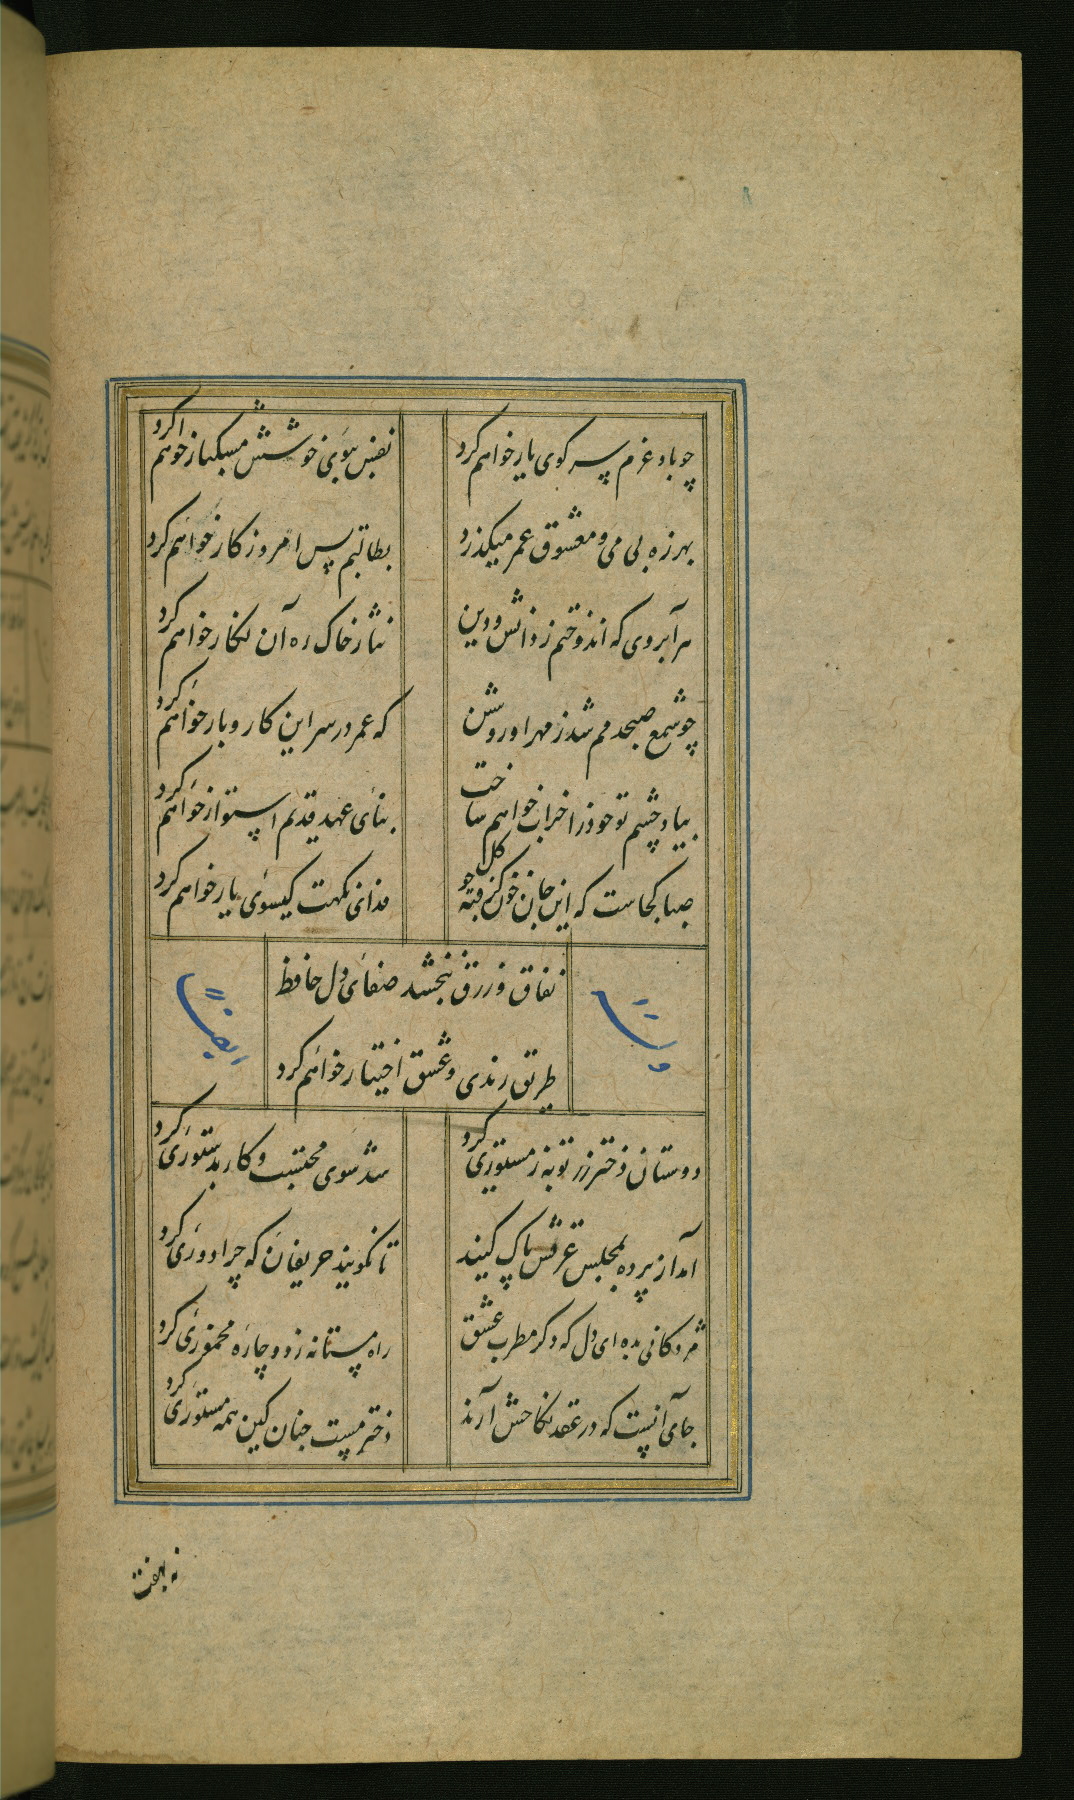 چو باد عزم سر کوی یار خواهم کرد
نفس ببوی خوشش مشکبار خواهم کرد
بهرزه بی می و معشوق عمر میکذرد
بطالتم بس امروز کار خواهم کرد
هر آبروی که اندوختم ز دانش و دین
نثار خاک ره آن نکار خواهم کرد
چو شمع صبحدمم شد ز مهر او روشن
که عمر در سر این کار و بار خواهم کرد
بیاد چشم تو خود را خراب خواهم ساخت
بنای عهد قدیم استوار خواهم کرد
صبا کجاست که این جان خون کرفته چو کل
فدای نکهت کیسوی یار خواهم کرد
نفاق و زرق نبخشد صفای دل حافظ
طریق رندی و عشق اختیار خواهم کرد
وله ایضاً
دوستان دختر رز توبه ز مستوری کرد
شد سوی محتسب و کار بدستوری کرد
آمد از پرده بمجلس عرقش پاک کنید
تا نکویند حریفان که چرا دوری کرد
مژدکانی بده ای دل که دکر مطرب عشق
راه مستانه زد و چاره مخموری کرد
جای آنست که در عقد نکاحش آرند
دختر مست چنان کین همه مستوری کرد
نه بهفت